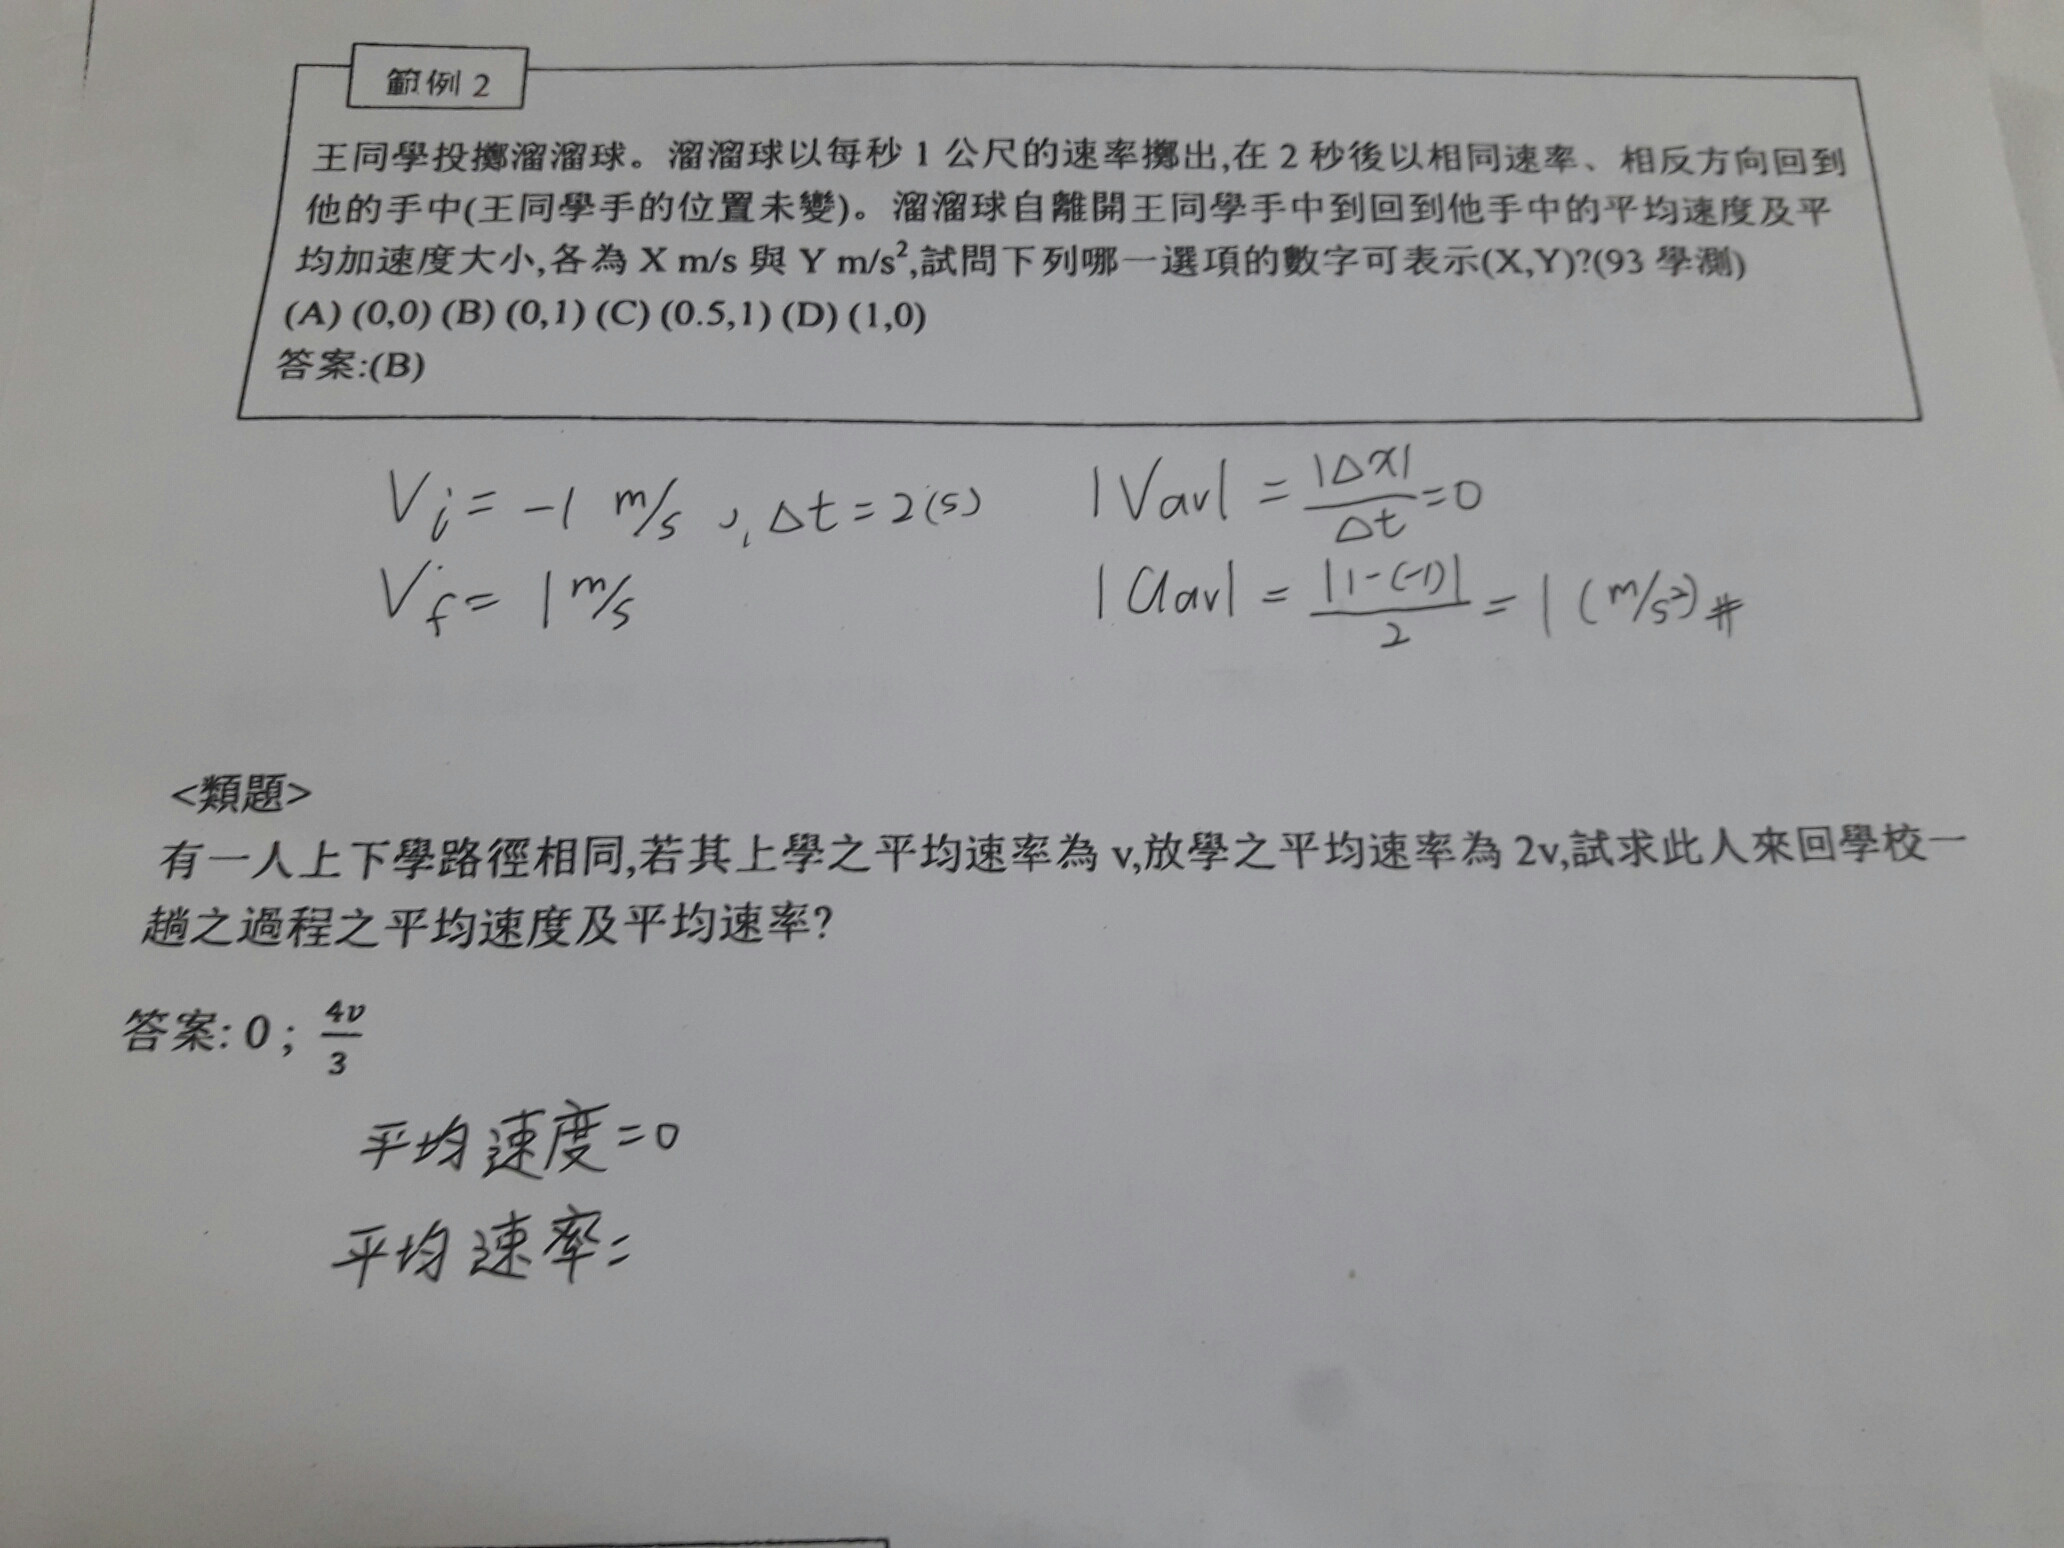 範例 2
王同學投擲溜溜球。溜溜球以每秒 1 公尺的速率擲出,在 2 秒後以相同速率、相反方向回到
他的手中(王同學手的位置未變)。溜溜球自離開王同學手中到回到他手中的平均速度及平
均加速度大小,各為 X m/s 與 Y m/s²,試問下列哪一選項的數字可表示(X,Y)?(93 學測)
(A) (0,0) (B) (0,1) (C) (0.5,1) (D) (1,0)
答案:(B)
Vi = -1 m/s , Δt = 2(s)
|Vav| = |Δx|/Δt = 0
Vf = 1 m/s
|aav| = |1-(-1)|/2 = 1 (m/s²)#
<類題>
有一人上下學路徑相同,若其上學之平均速率為 v,放學之平均速率為 2v,試求此人來回學校一
趟之過程之平均速度及平均速率?
答案: 0 ; 4v/3
平均速度=0
平均速率=